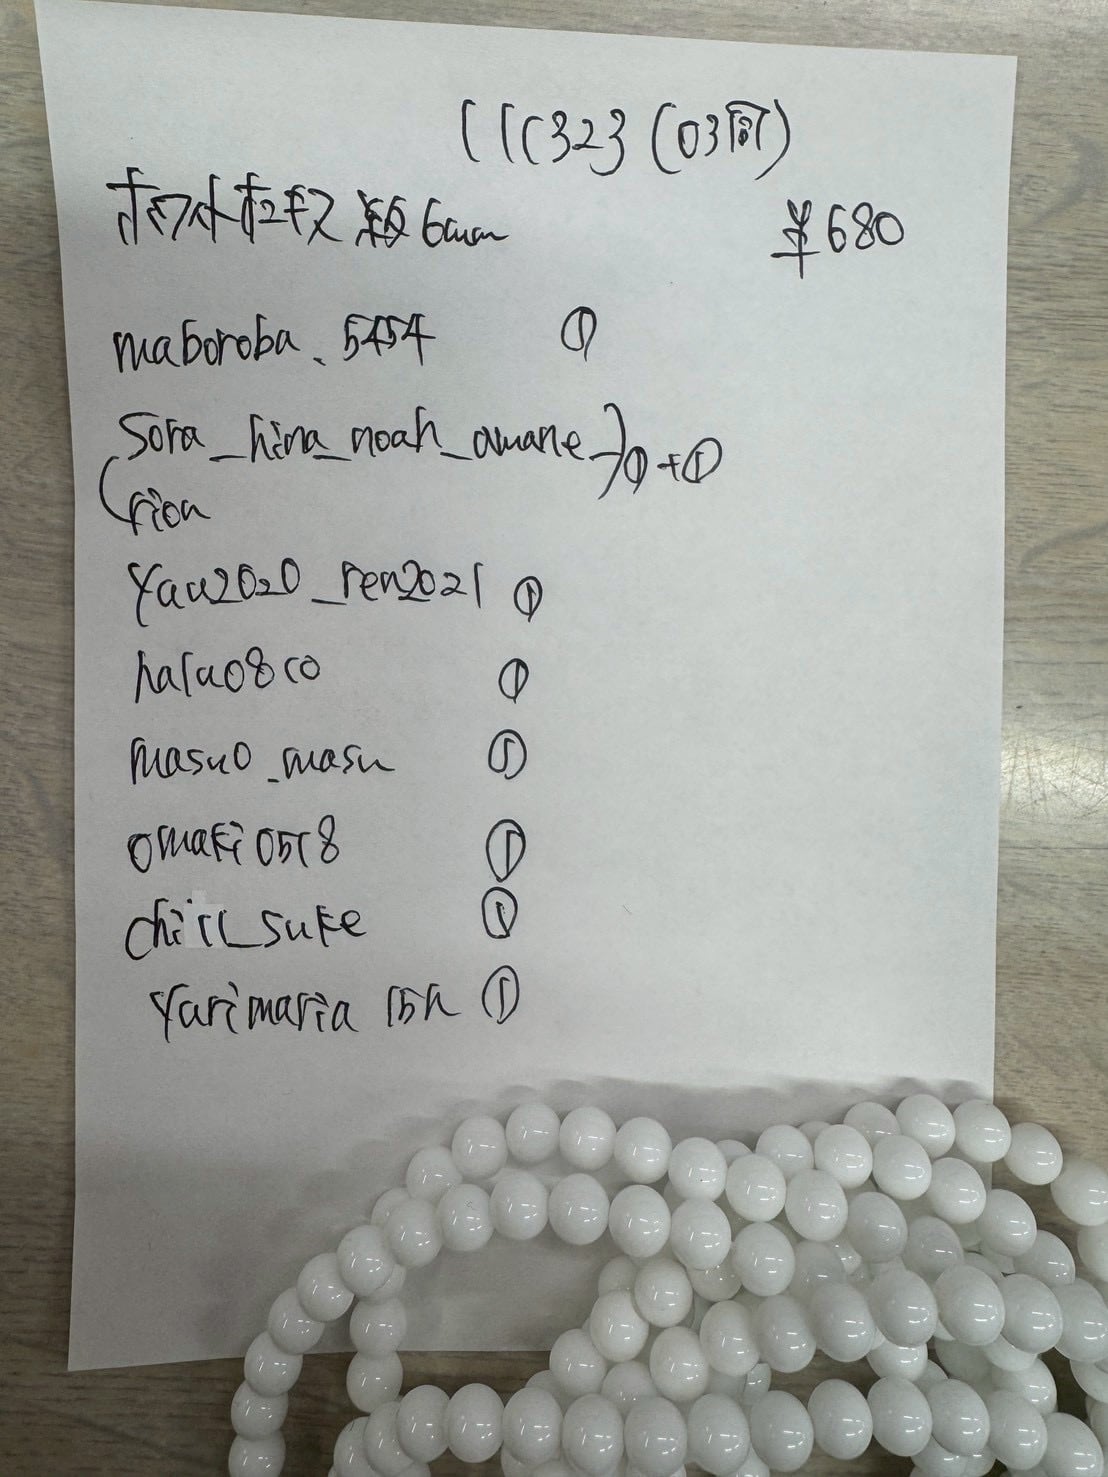 111323 (103前)
ホワイトオニキス 約6mm ¥680
maboroba.5454 ①
sora_hina_noah_amane ①+①
rion
yau2020_ren2021 ①
halu08co ①
masu0_masu ①
omaki0518 ①
chill_suke ①
yurimaria 15h ①